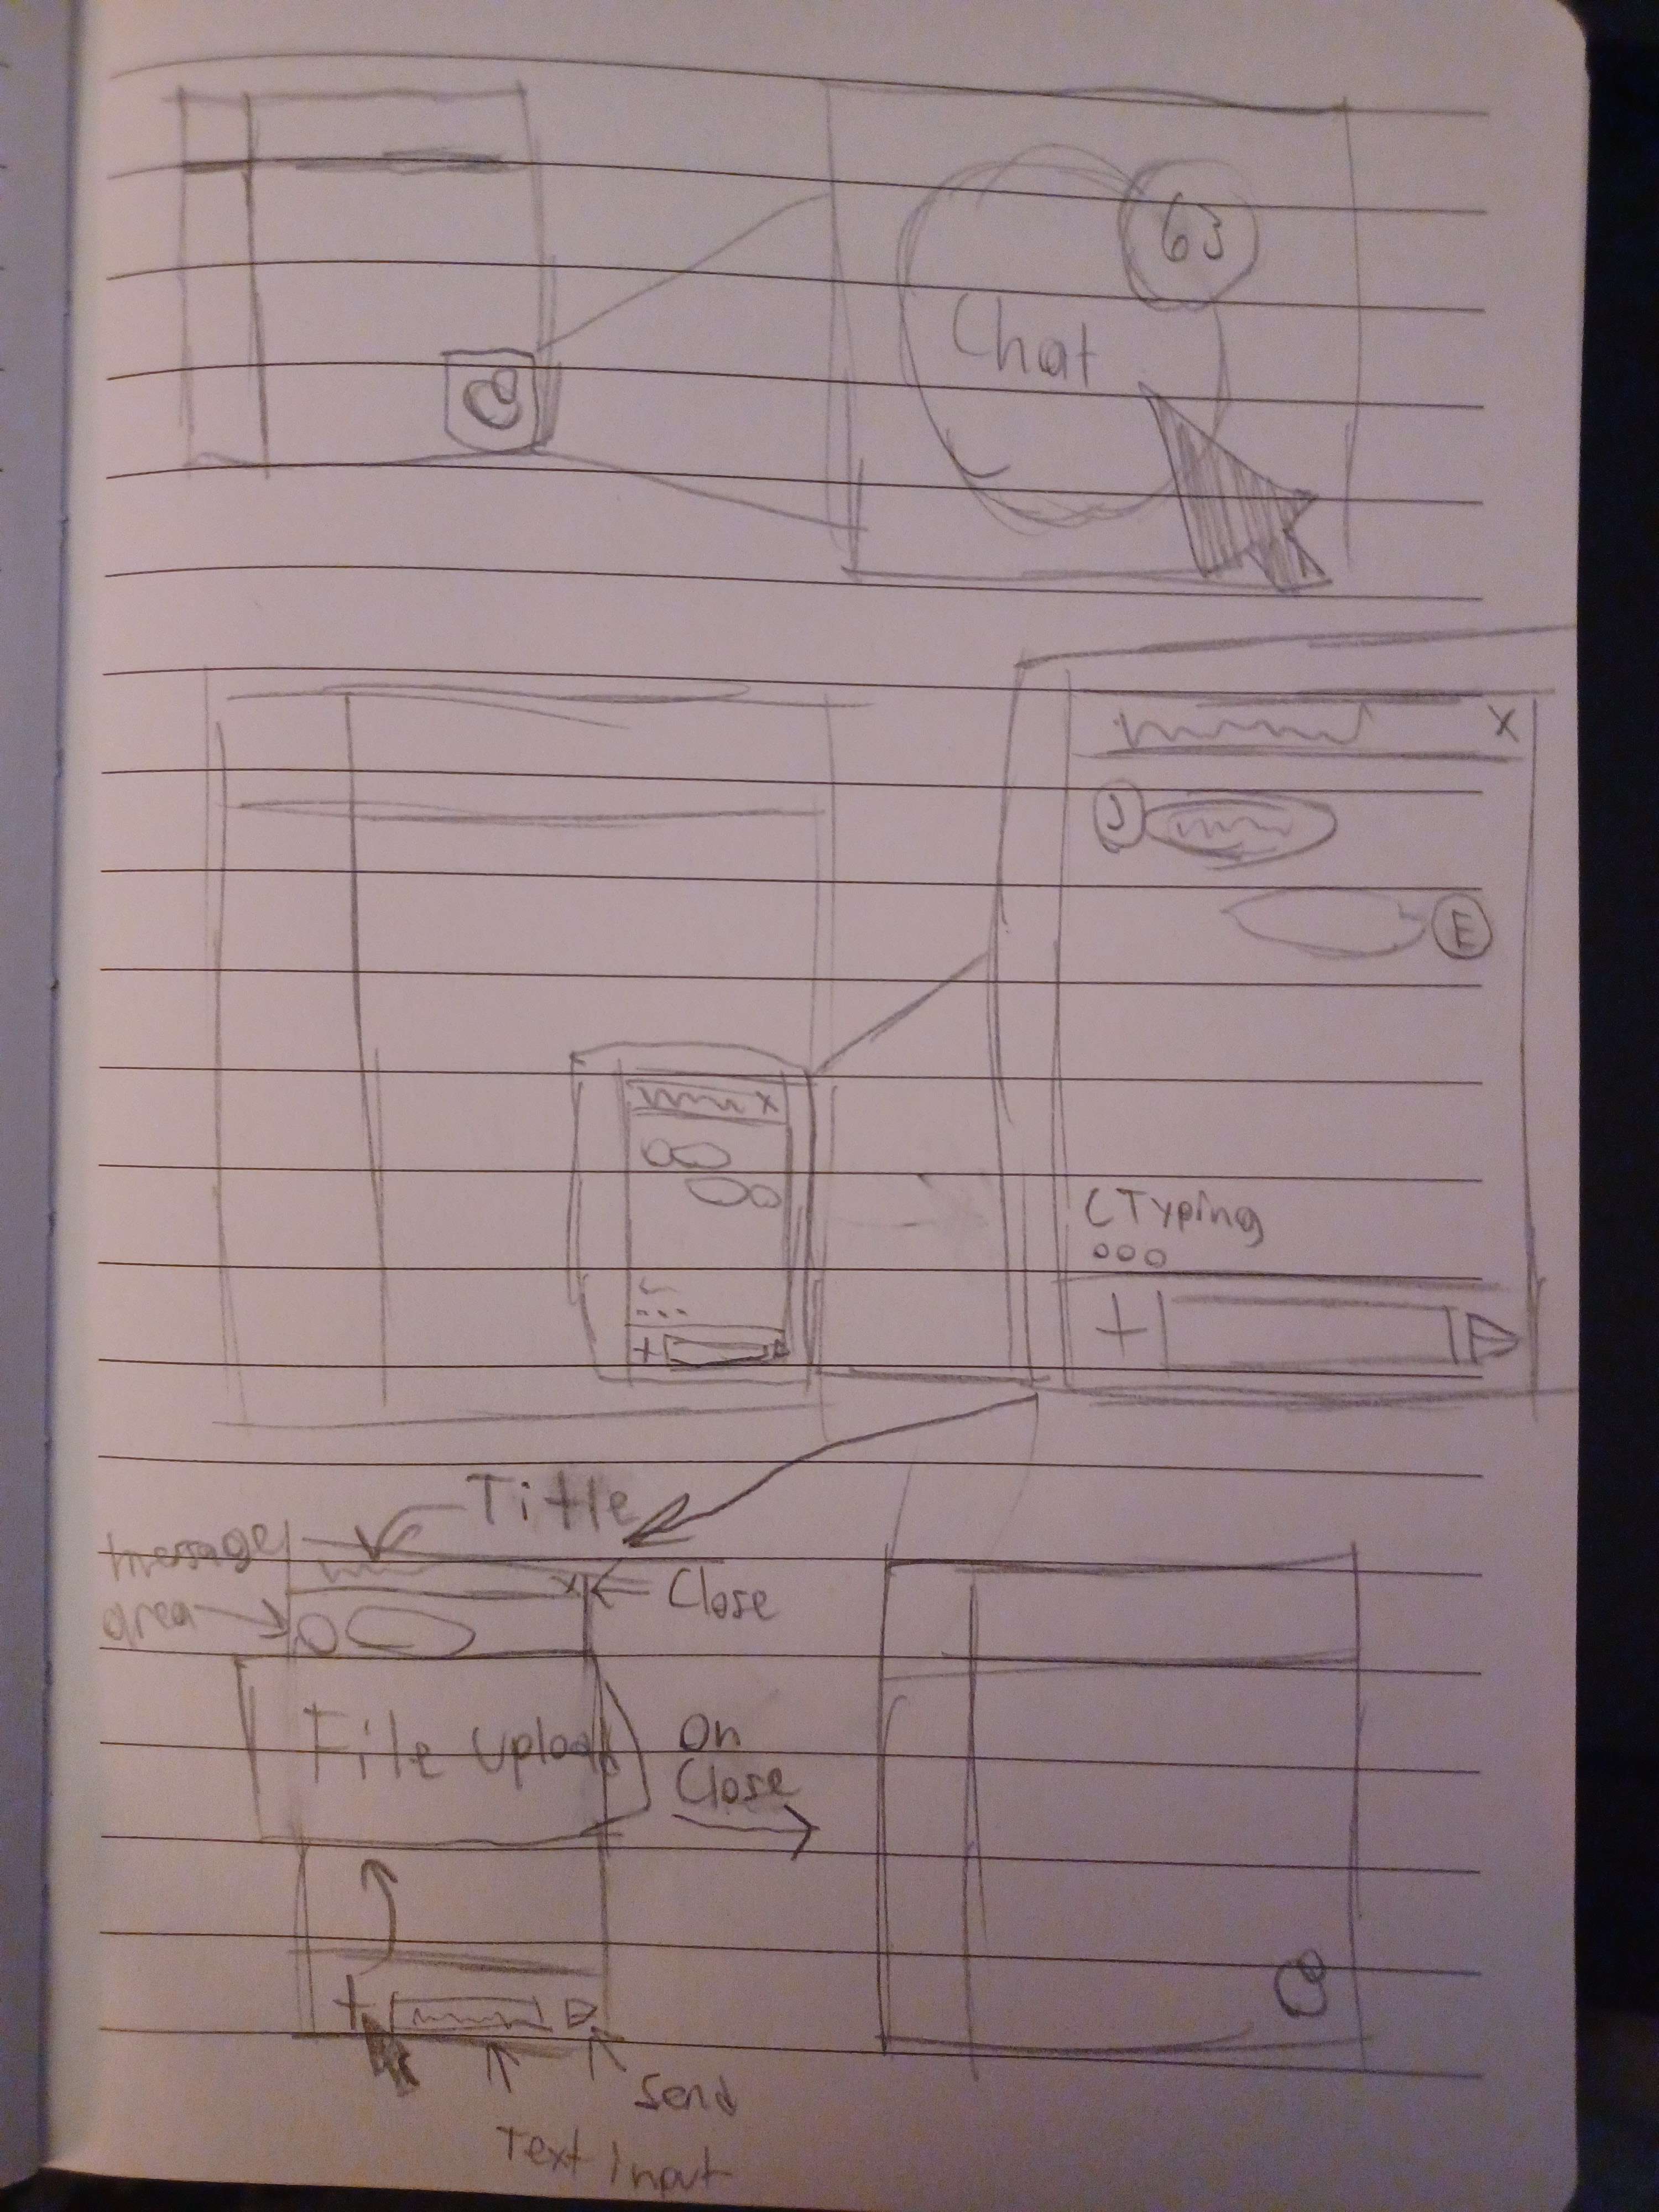 63
Chat
X
J
E
C Typing
+
X
+
Title
message
area
X
Close
File Upload
On
Close
+
Send
Text input